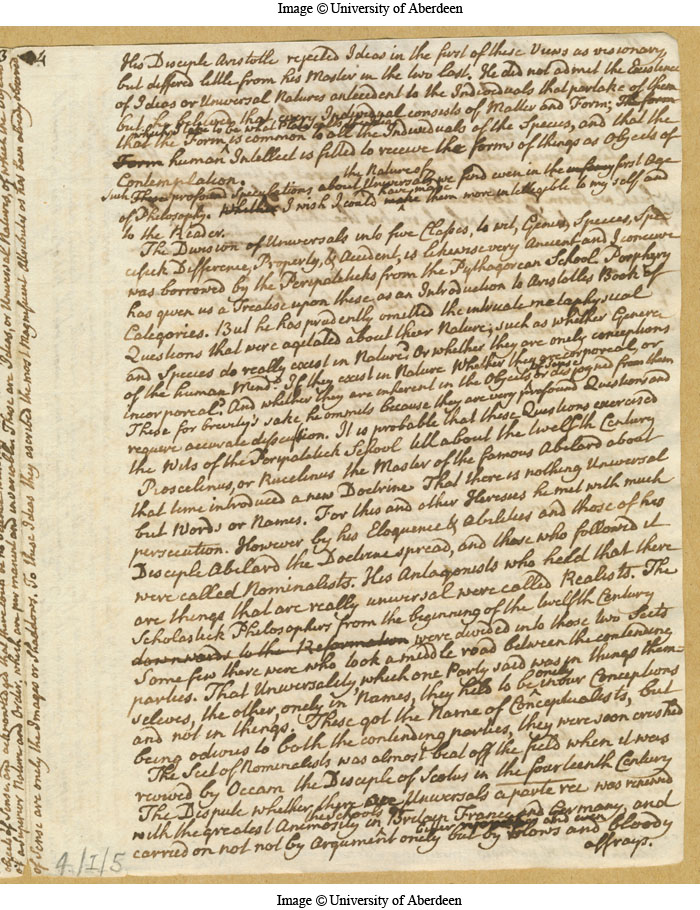 Image © University of Aberdeen
4
His Disciple Aristotle rejected Ideas in the first of these Views as visionary
but differed little from his Master in the two last. He did not admit the Existence
of Ideas or Universal Natures antecedent to the Individuals that partake of them
but he believed that every Individual consists of Matter and Form; The form
that the Form is common to all the Individuals of the Species, and that the
Form human Intellect is fitted to receive the forms of things as Objects of
Contemplation.
the Nature of
Such These profound Speculations about Universals we find even in the first Age
of Philosophy. Whether I wish I could make them more intelligible to my self and
have made
to the Reader.
The Division of Universals into five Classes, to wit, Genus, Species, Spe-
cifick Difference, Property, & Accident, is likewise very Ancient and I conceive
was borrowed by the Peripateticks from the Pythagorean School. Porphyry
has given us a Treatise upon these, as an Introduction to Aristotles Book of
Categories. But he has prudently omitted the intricate metaphysical
Questions that were agitated about their Nature; such as whether Genera
and Species do really exist in Nature? Or whether they are only conceptions
of the human Mind? If they exist in Nature Whether they are corporeal, or
incorporeal? And whether they are inherent in the Objects of Sense or disjoyned from them
These for brevity's sake he ommits because they are very profound Questions and
require accurate discussion. It is probable that these Questions exercised
the Wits of the Peripatetick School till about the twelfth Century
Roscelinus, or Rucelinus the Master of the famous Abelard about
that time introduced a new Doctrine That there is nothing Universal
but Words or Names. For this and other Heresies he met with much
persecution. However by his Eloquence & Abilities and those of his
Disciple Abelard the Doctrine spread, and those who followed it
were called Nominalists. His Antagonists who held that there
are things that are really universal were called Realists. The
Scholastick Philosophers from the beginning of the twelfth Century
downwards to the Reformation were divided into those two Sects
Some few there were who took a middle road between the contending
parties. That Universality, which one Party said was in things them-
selves, the other, onely in Names, they held to be onely in our Conceptions
and not in things. These got the Name of Conceptualists, but
being odious to both the contending parties, they were soon crushed
The Sect of Nominalists was almost beat off the field when it was
revived by Occam the Disciple of Scotus in the fourteenth Century
The Dispute whether there are Universals a parte rei was renewed
with the greatest Animosity in the Schools of Britain France and Germany, and
carried on not by Argument onely but by and even blows and bloody
affrays.
of Sense are only the Images or Shaddows. To these Ideas they ascribed the most Magnificent Attributes as has been already observed
4/I/5
Image © University of Aberdeen